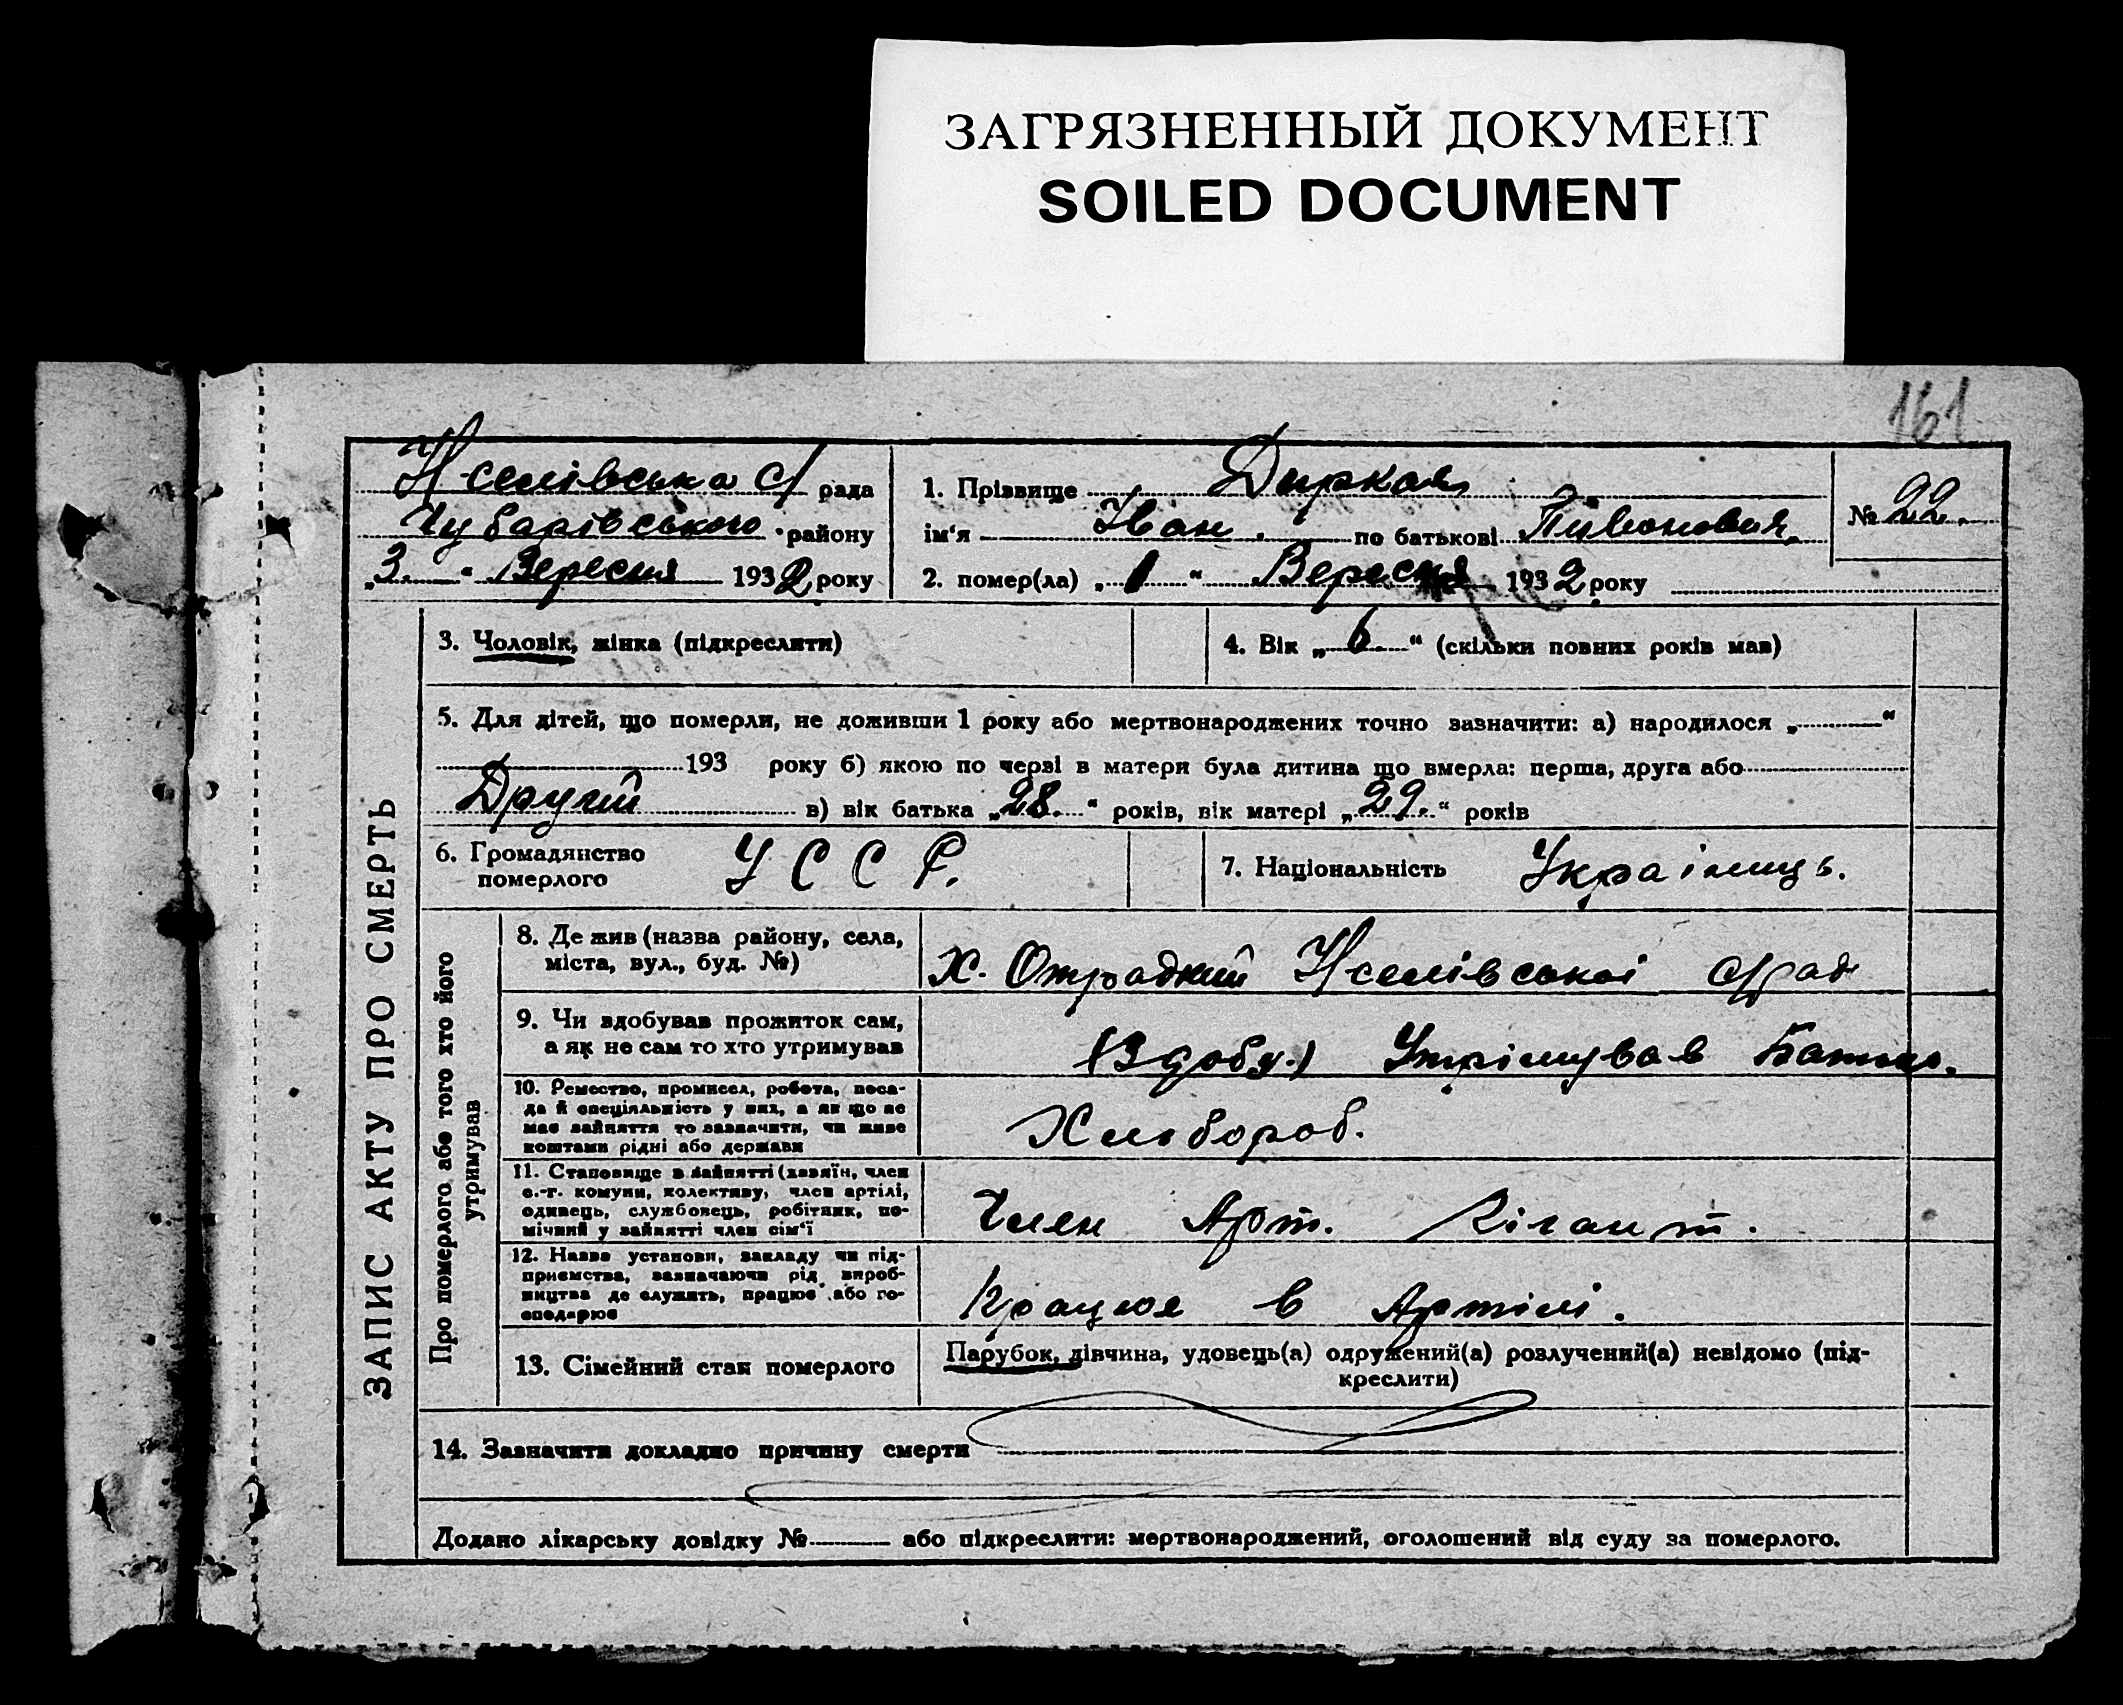 ЗАГРЯЗНЕННЫЙ ДОКУМЕНТ
SOILED DOCUMENT
161
Н-селівська с/ рада
Чубарівського району
„3.“ Вересня 1932 року
1. Прізвище
ім'я Іван. по батькові
№ 22.
2. помер(ла) „1“ Вересня 1932 року
ЗАПИС АКТУ ПРО СМЕРТЬ
3. Чоловік, жінка (підкреслити)
4. Вік „6.“ (скільки повних років мав)
5. Для дітей, що померли, не доживши 1 року або мертвонароджених точно зазначити: а) народилося „ “
193 року б) якою по черзі в матери була дитина що вмерла: перша, друга або
Другій в) вік батька „28.“ років, вік матері „29.“ років
6. Громадянство
померлого
У С С Р.
7. Національність Українць.
Про померлого або того хто його
утримував
8. Де жив (назва району, села,
міста, вул., буд. №)
Х. Отрадний Н-селівської с/рад
9. Чи здобував прожиток сам,
а як не сам то хто утримував
(Здобу.) Утрімував Батько.
10. Ремество, промисел, робота, поса-
да й спеціяльність у них, а як що не
має зайняття то зазначити, чи живе
коштами рідні або держави
Хлібороб.
11. Становище в зайнятті (хазяїн, член
с.-г. комуни, колективу, член артілі,
одинець, службовець, робітник, по-
мічний у зайнятті член сім'ї
Член Арт. Гігант.
12. Назва установи, закладу чи під-
приємства, зазначаючи рід вироб-
ництва де служить, працює або го-
сподарює
Працює в Артілі.
13. Сімейний стан померлого
Парубок, дівчина, удовець(а) одружений(а) розлучений(а) невідомо (під-
креслити)
14. Зазначити докладно причину смерти
Додано лікарську довідку № або підкреслити: мертвонароджений, оголошений від суду за померлого.